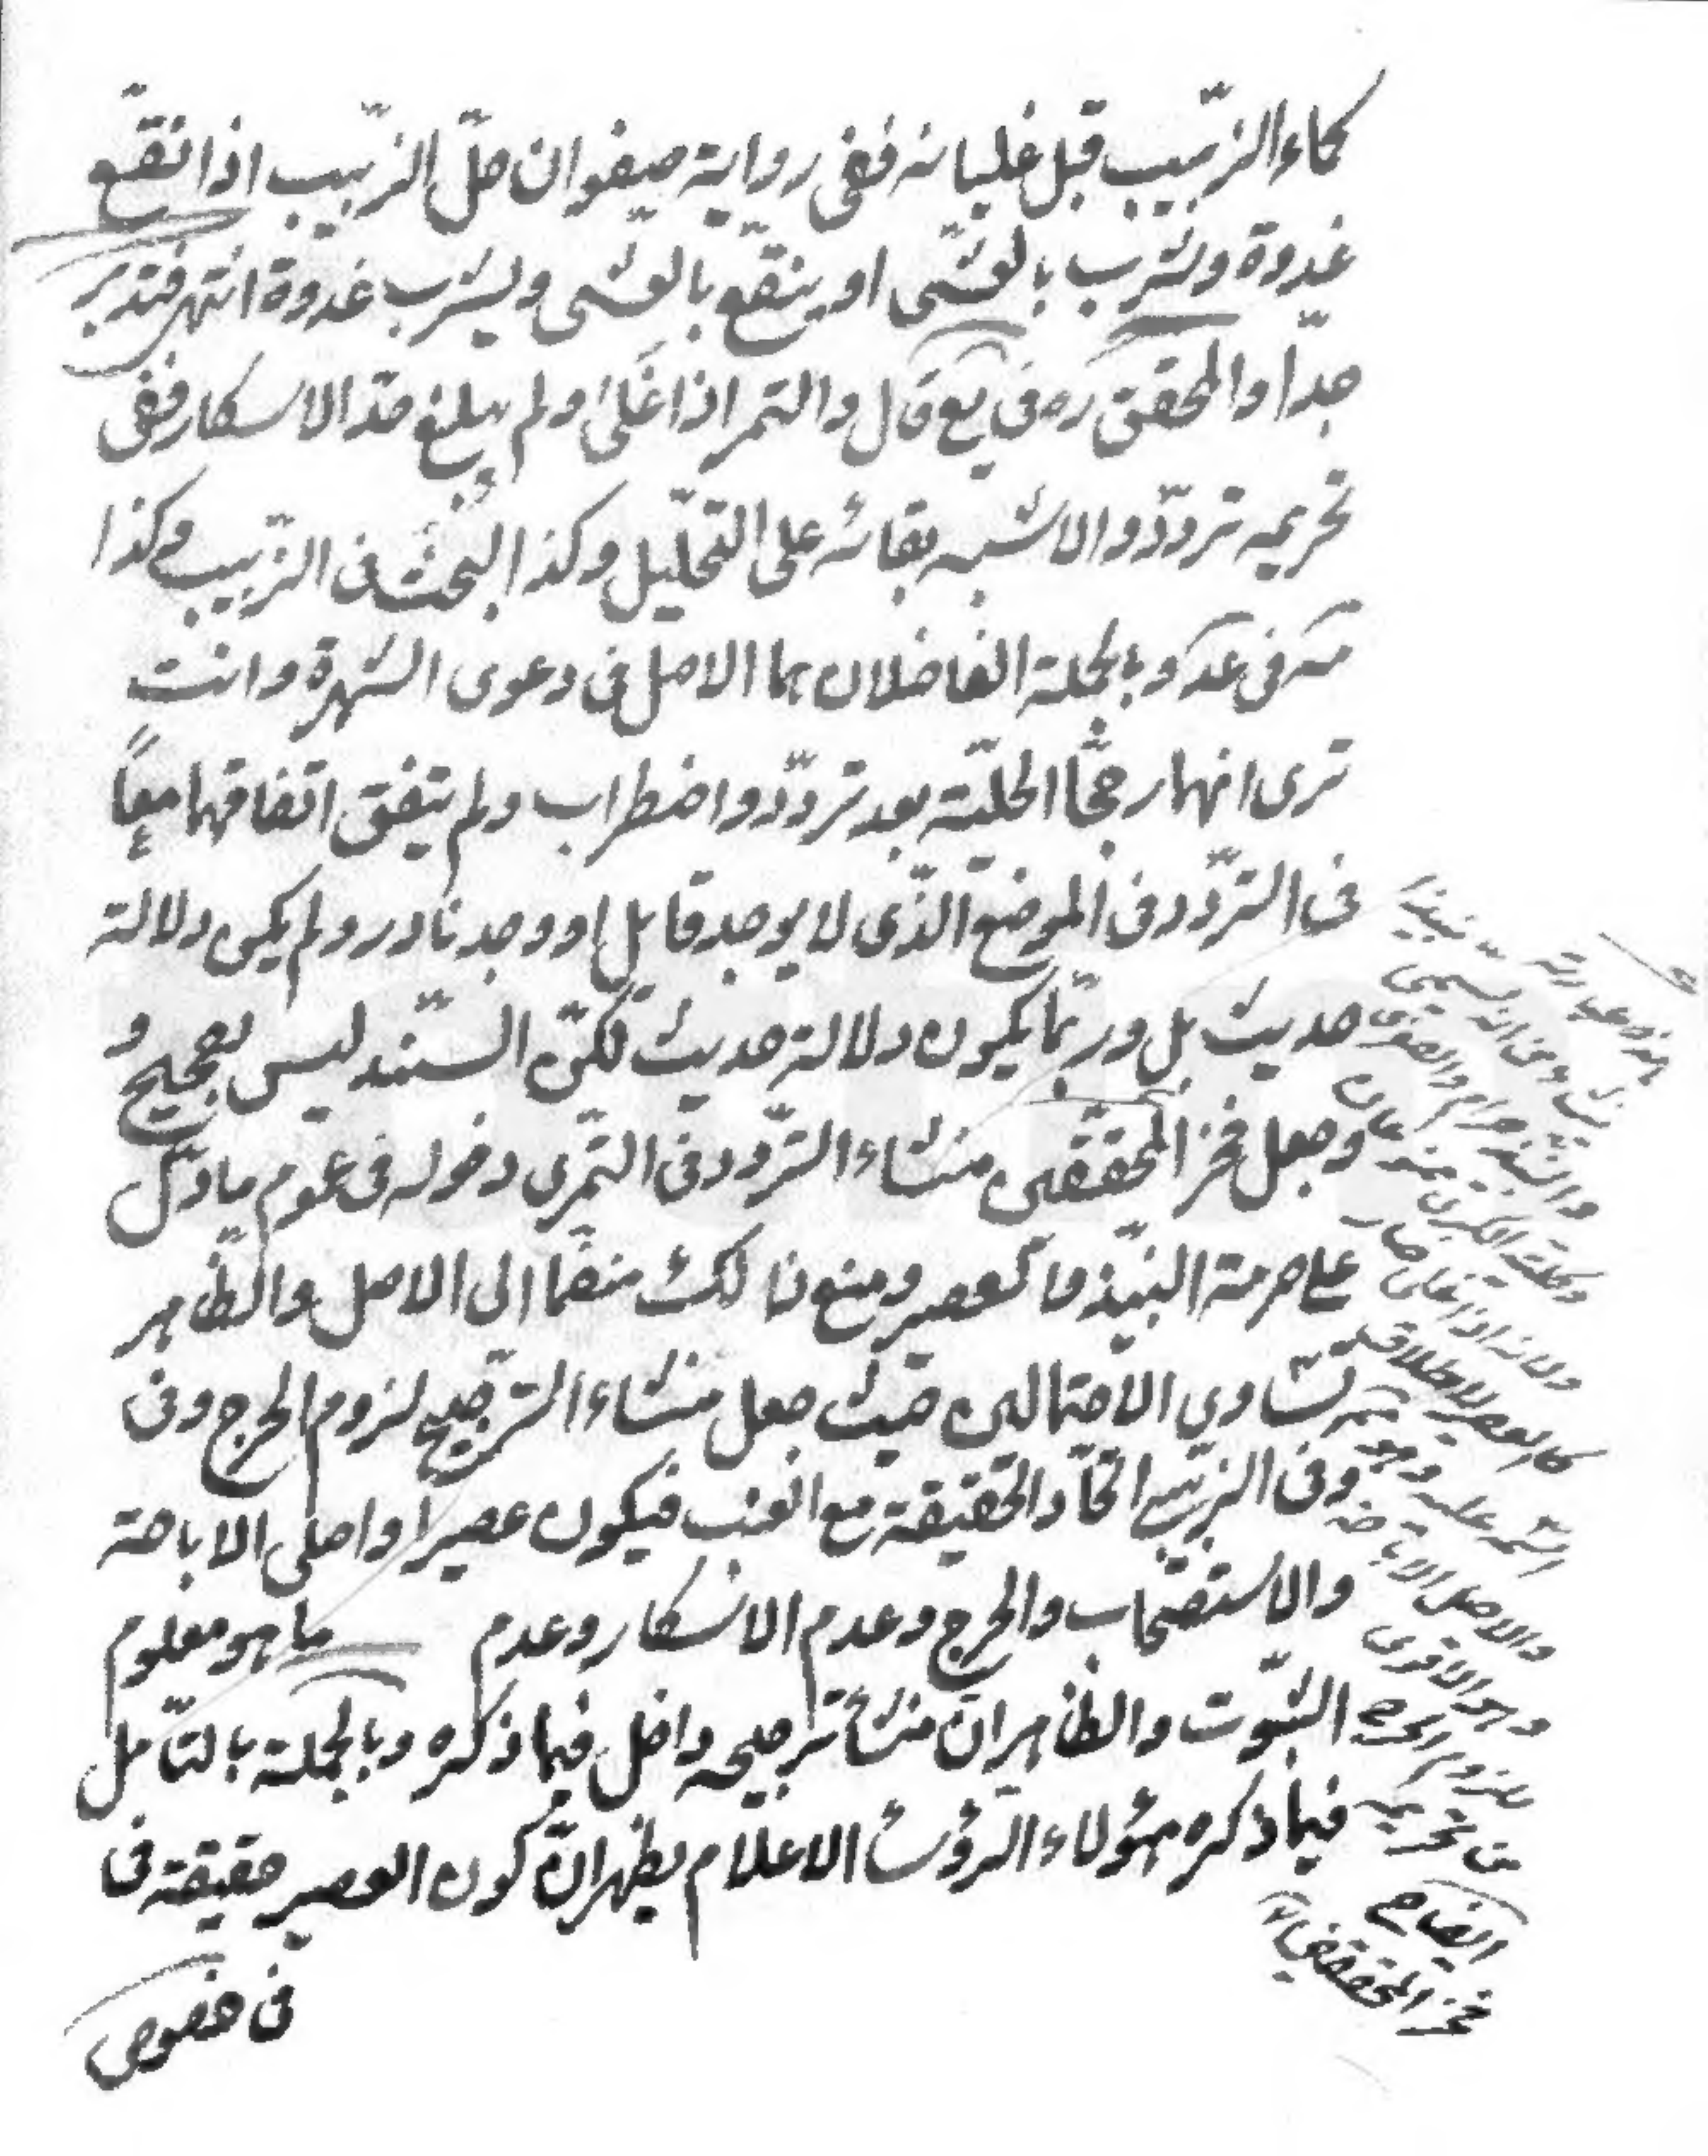 كماء الزّبيب قبل غليانه ففى رواية صفوان حلّ الزّبيب اذا نقّع
غدوة ويشرب بالعشّى او ينقّع بالعشى ويشرب غدوة انتهى فتدبّر
جدّا والمحقق ره فى يع قال والتمر اذا غلى ولم يبلغ حدّ الاسكار ففى
تحريمه تردّد والاشبه بقائه على التحليل وكذا البحث فى الزّبيب وكذا
مه فى عد وبالجملة الفاضلان هما الاصل فى دعوى الشهرة وانت
ترى انهما رجّحا الحليّة بعد تردّد واضطراب ولم يتفق اتفاقهما معاً
فى التردّد فى الموضع الذّى لا يوجد قايل او وجد نادر ولم يكن دلالة
حديث بل وربّما يكون دلالة حديث لكنّ السنّد ليس بصحيح و
وجعل فخر المحققين منشاء التردّد فى التّمرى دخوله فى عموم ما دلّ
على حرمة النبيّذ ما كعصير ومنع ذلك منضّما الى الاصل والظّاهر
تساوى الاحتمالين حيث جعل منشاء الترجيح لزوم الحرج وفى
وفى الزّبيب اتحّاد الحقيقة مع العنب فيكون عصيرا واصلى الاباحة
والاستصحاب والحرج وعدم الاسكار وعدم ما هو معلوم
الثبّوت والظاهر ان منشأ ترجيحه داخل فيما ذكره وبالجملة بالتاّمل
فيما ذكره هؤلاء الرّؤس الاعلام يظهر انّ كون العصير حقيقة فى
فى خصوص
هذه عبارته نبيذا
ومن انه يسمى
والنبيذ حرام والصغرى
ممنوعان
ولانه اذا غلى صار
كالعصير لاطلاق
عليه وهو
والاصل الاباحة
وهو الاقوى
للزوم الحرج
من تحريمه
ايضاح
فخر المحققين